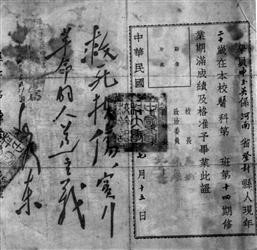 係河南省登封縣人現年
二十歲在本校醫科第 班第十四期修
業期滿成績及格准予畢業此證
校長
政治委員
中華民國 七月十五日
救死扶傷，實行
革命的人道主義
毛澤東